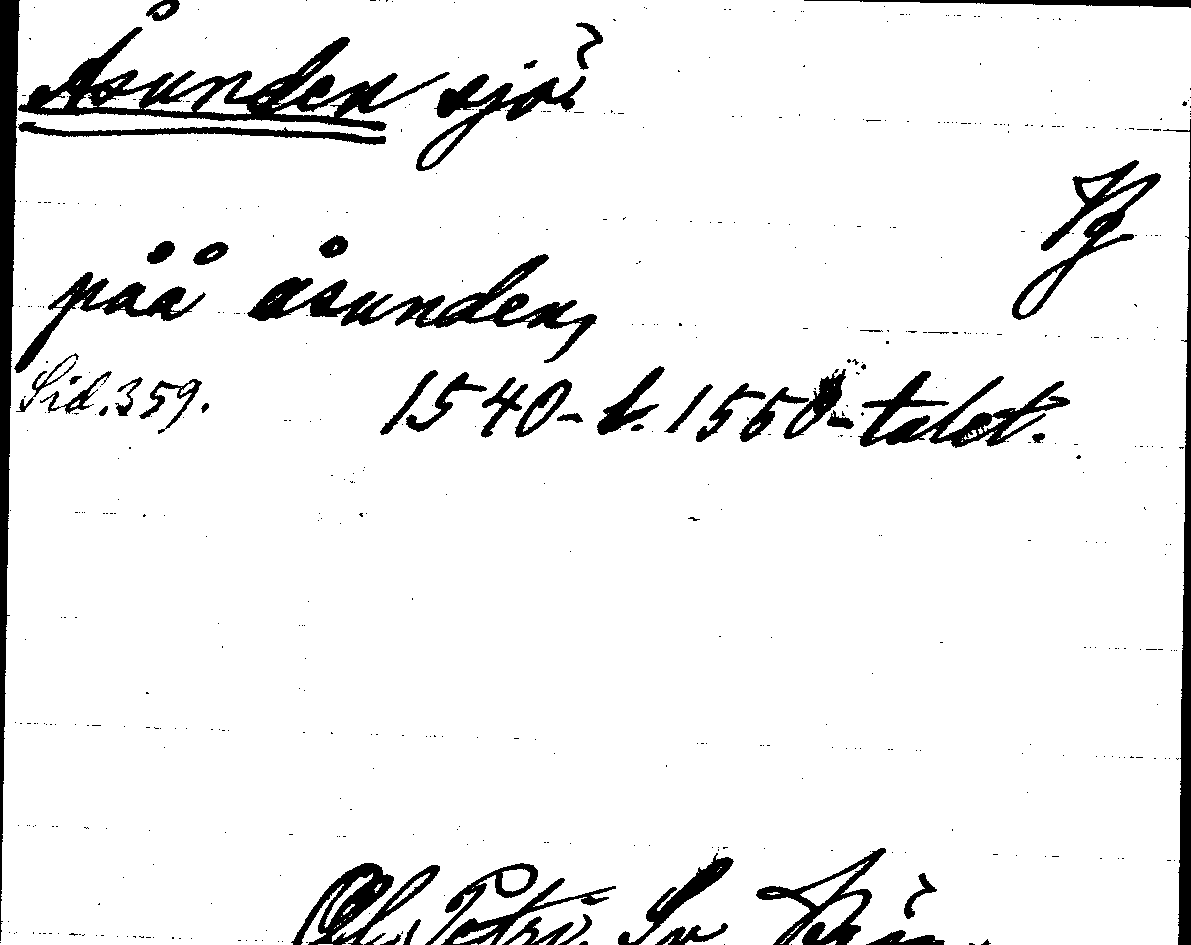 Åsunden sjö?
Vg
påå åsunden,
Sid. 359. 1540-t. 1550-talet.
Ol. Petri. Sv. Krön.